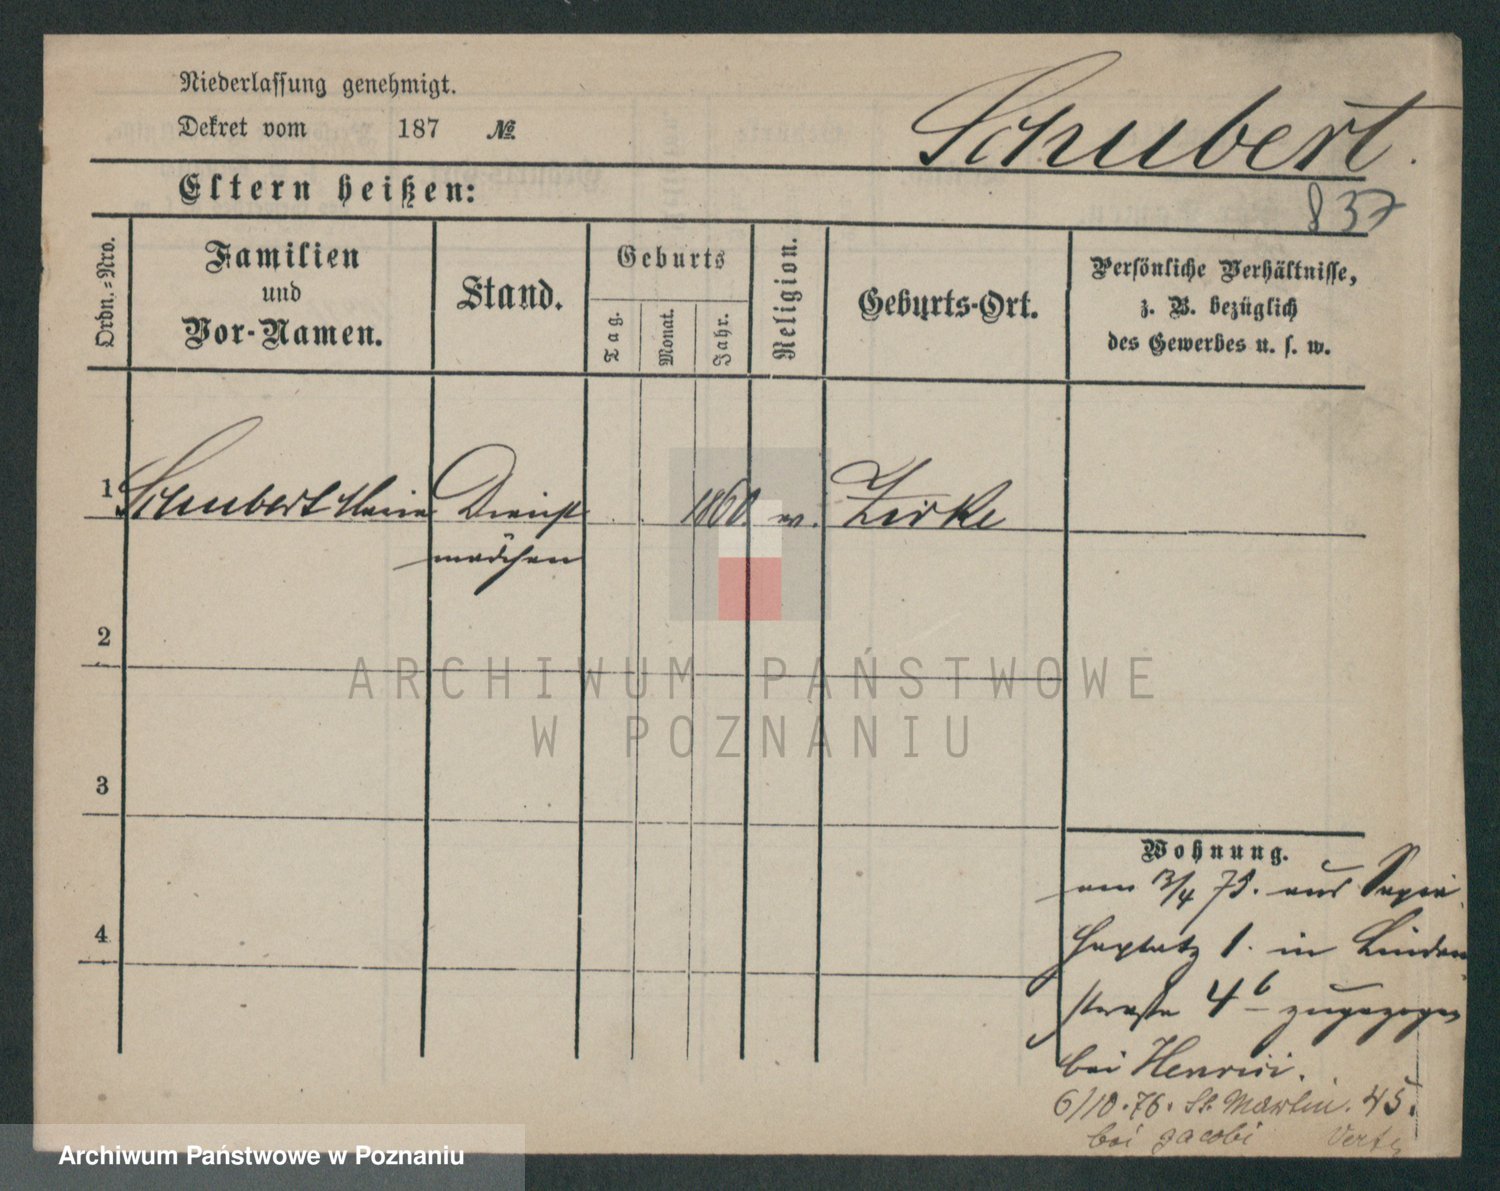 Niederlassung genehmigt.
Dekret vom 187 №
Schubert.
837
Eltern heißen:
Ordn.-Nro.
Familien
und
Vor-Namen.
Stand.
Geburts
Tag.
Monat.
Jahr.
Religion.
Geburts-Ort.
Persönliche Verhältnisse,
z. B. bezüglich
des Gewerbes u. s. w.
1 Schubert Marie Dienst 1860. Zirke
mädchen
2
ARCHIWUM PAŃSTWOWE
W POZNANIU
3
Wohnung.
am 13/4 75. aus Sapie
haplatz 1. in Linden
4
straße 4b zugezogen
bei Henrici.
6/10.76. St. Martin. 45.
bei Jacobi Verte
Archiwum Państwowe w Poznaniu